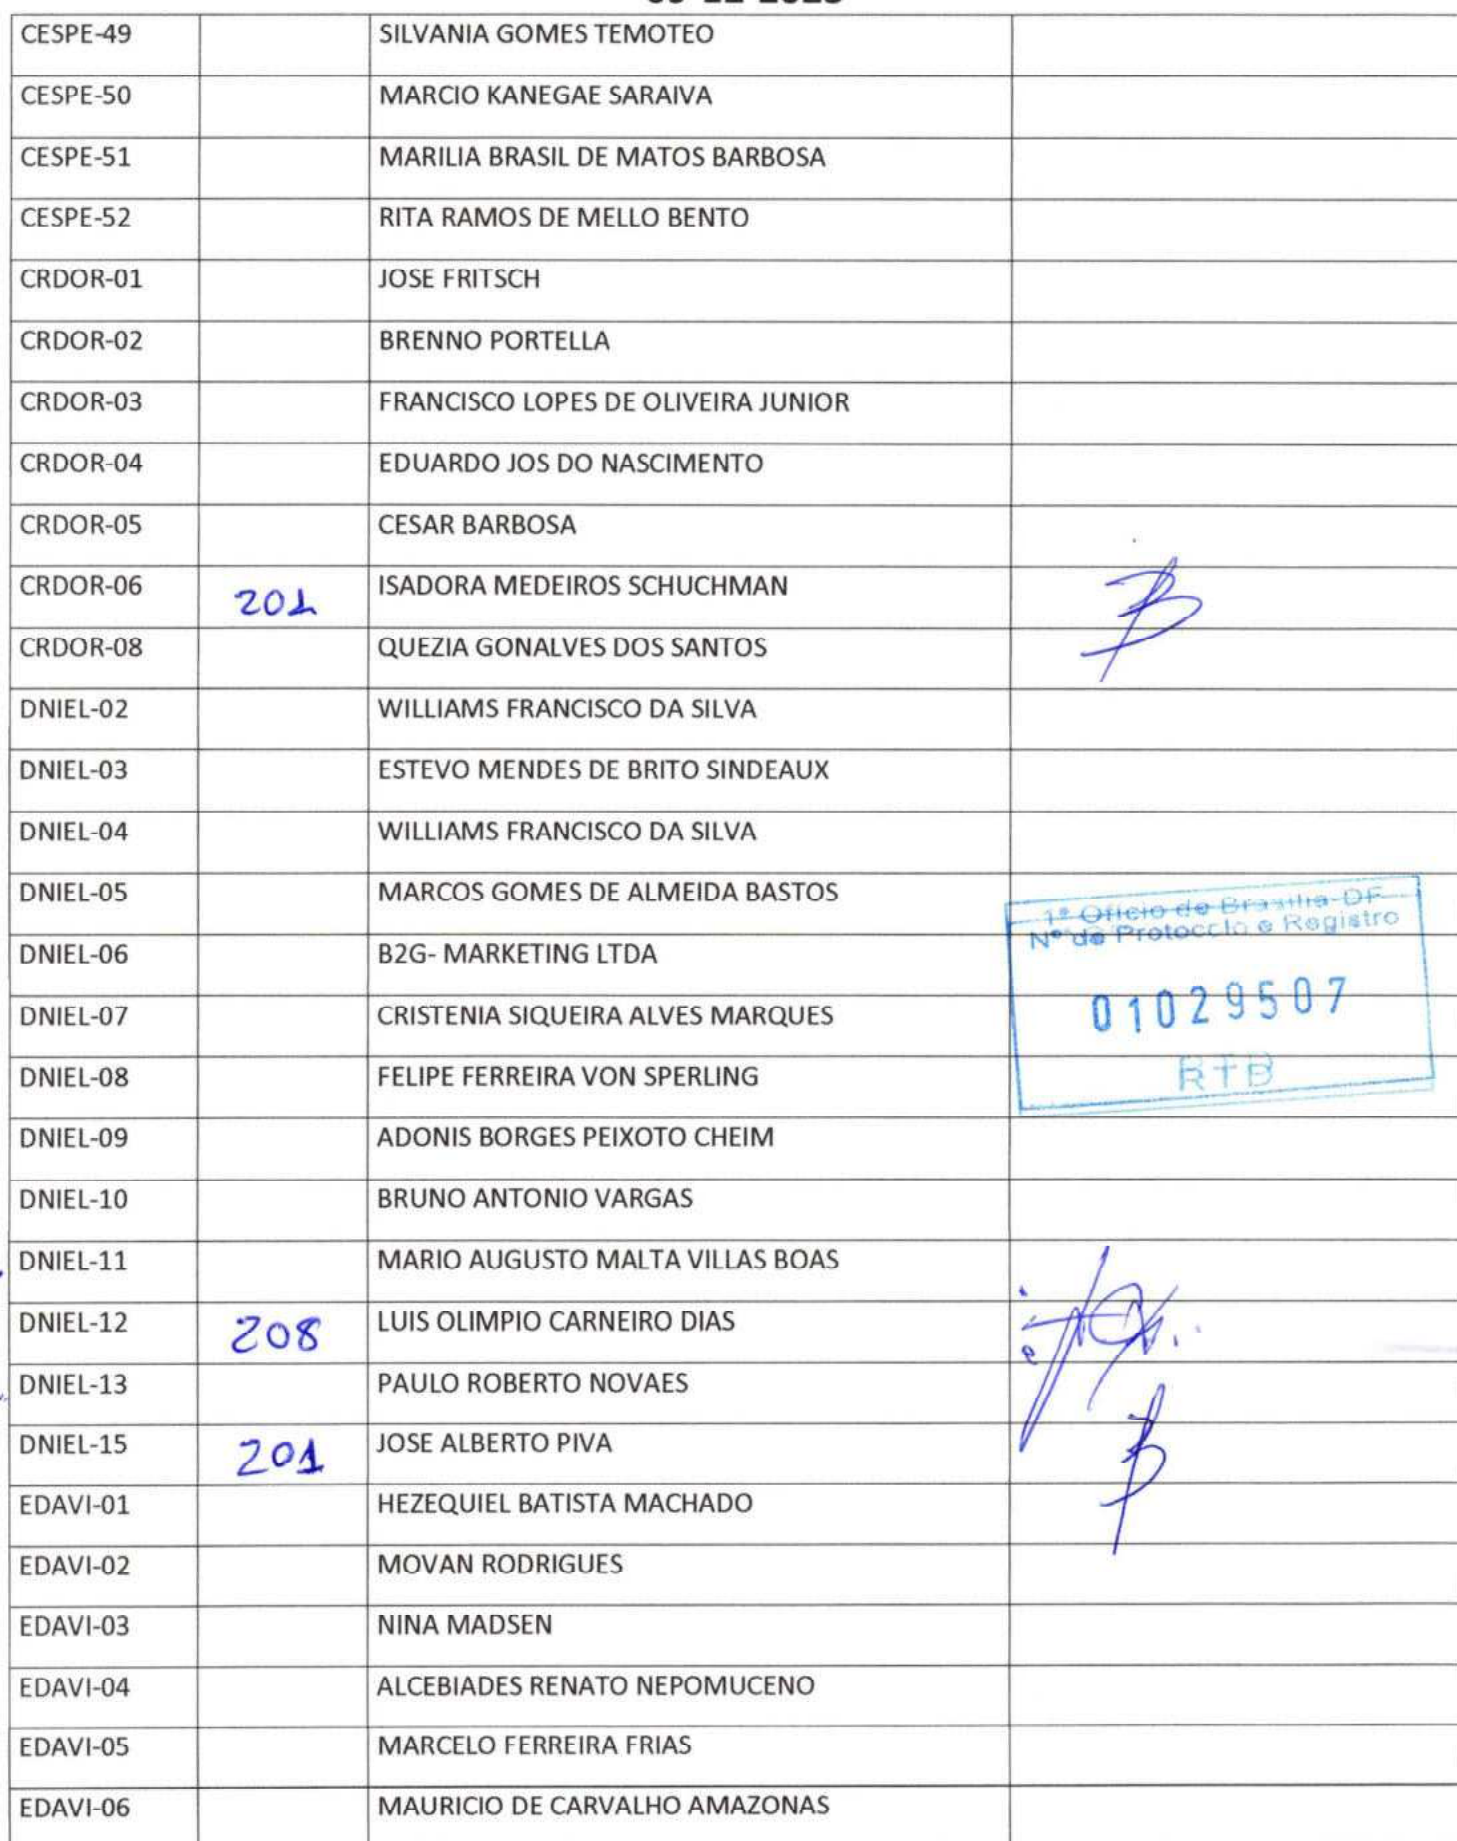 CESPE-49 SILVANIA GOMES TEMOTEO
CESPE-50 MARCIO KANEGAE SARAIVA
CESPE-51 MARILIA BRASIL DE MATOS BARBOSA
CESPE-52 RITA RAMOS DE MELLO BENTO
CRDOR-01 JOSE FRITSCH
CRDOR-02 BRENNO PORTELLA
CRDOR-03 FRANCISCO LOPES DE OLIVEIRA JUNIOR
CRDOR-04 EDUARDO JOS DO NASCIMENTO
CRDOR-05 CESAR BARBOSA
CRDOR-06 201 ISADORA MEDEIROS SCHUCHMAN
CRDOR-08 QUEZIA GONALVES DOS SANTOS
DNIEL-02 WILLIAMS FRANCISCO DA SILVA
DNIEL-03 ESTEVO MENDES DE BRITO SINDEAUX
DNIEL-04 WILLIAMS FRANCISCO DA SILVA
DNIEL-05 MARCOS GOMES DE ALMEIDA BASTOS
1º Oficio de Brasilia-DF
Nº de Protocolo e Registro
DNIEL-06 B2G- MARKETING LTDA
DNIEL-07 CRISTENIA SIQUEIRA ALVES MARQUES 01029507
DNIEL-08 FELIPE FERREIRA VON SPERLING RTB
DNIEL-09 ADONIS BORGES PEIXOTO CHEIM
DNIEL-10 BRUNO ANTONIO VARGAS
DNIEL-11 MARIO AUGUSTO MALTA VILLAS BOAS
DNIEL-12 208 LUIS OLIMPIO CARNEIRO DIAS
DNIEL-13 PAULO ROBERTO NOVAES
DNIEL-15 201 JOSE ALBERTO PIVA
EDAVI-01 HEZEQUIEL BATISTA MACHADO
EDAVI-02 MOVAN RODRIGUES
EDAVI-03 NINA MADSEN
EDAVI-04 ALCEBIADES RENATO NEPOMUCENO
EDAVI-05 MARCELO FERREIRA FRIAS
EDAVI-06 MAURICIO DE CARVALHO AMAZONAS